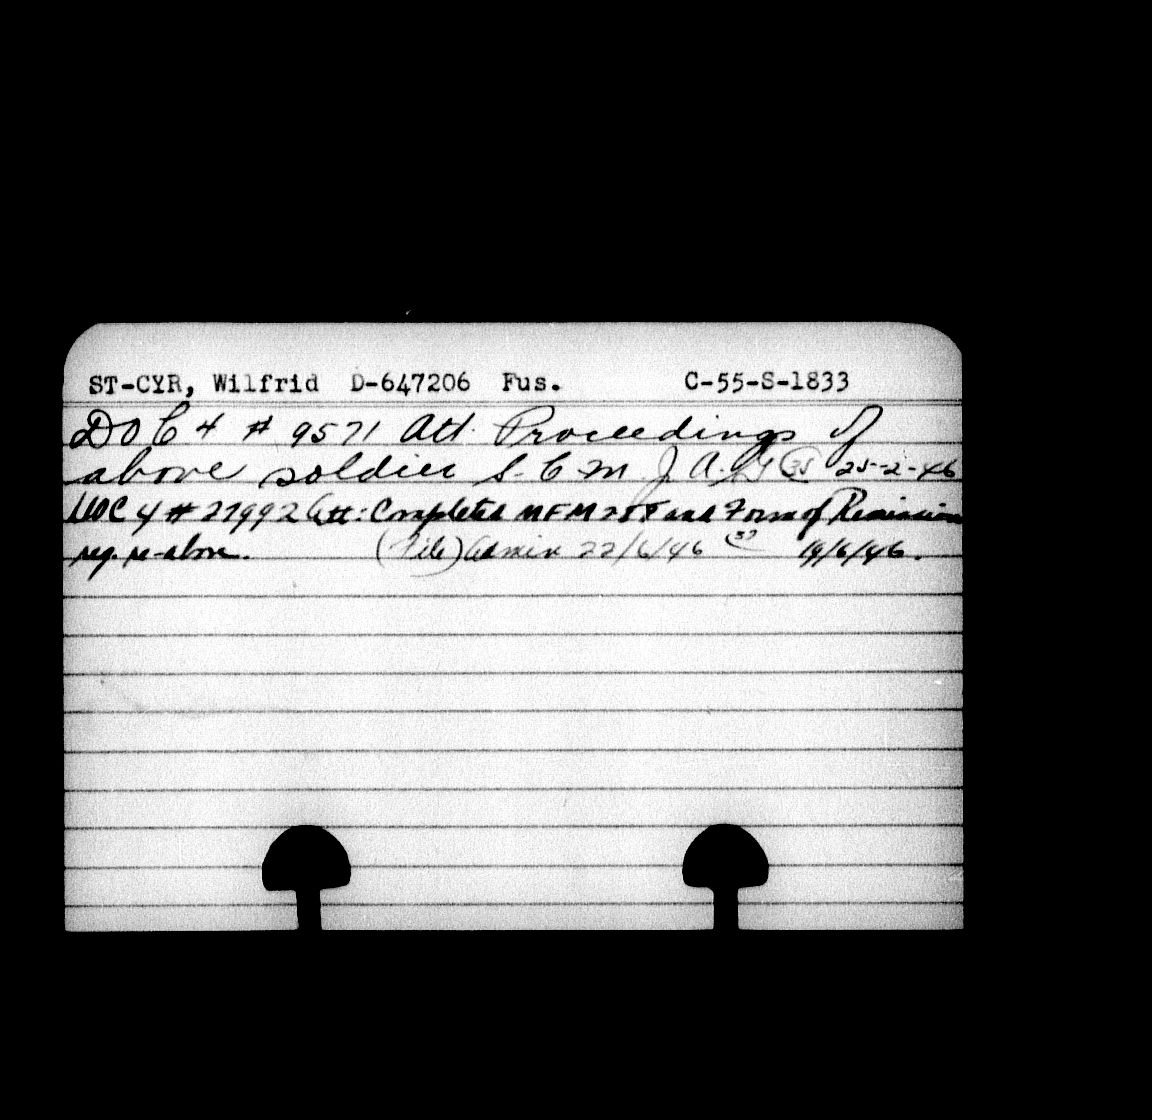 ST-CYR, Wilfrid D-647206 Fus. C-55-S-1833
DOC 4 # 9571 Att. Proceedings of
above soldier S.C.M. J.A.G. (35) 25-2-46
DOC 4 # 27992 Att: Completed MFM and Form of Remission
reg. re-above. (File) Admin 22/6/46 (37) 19/6/46.